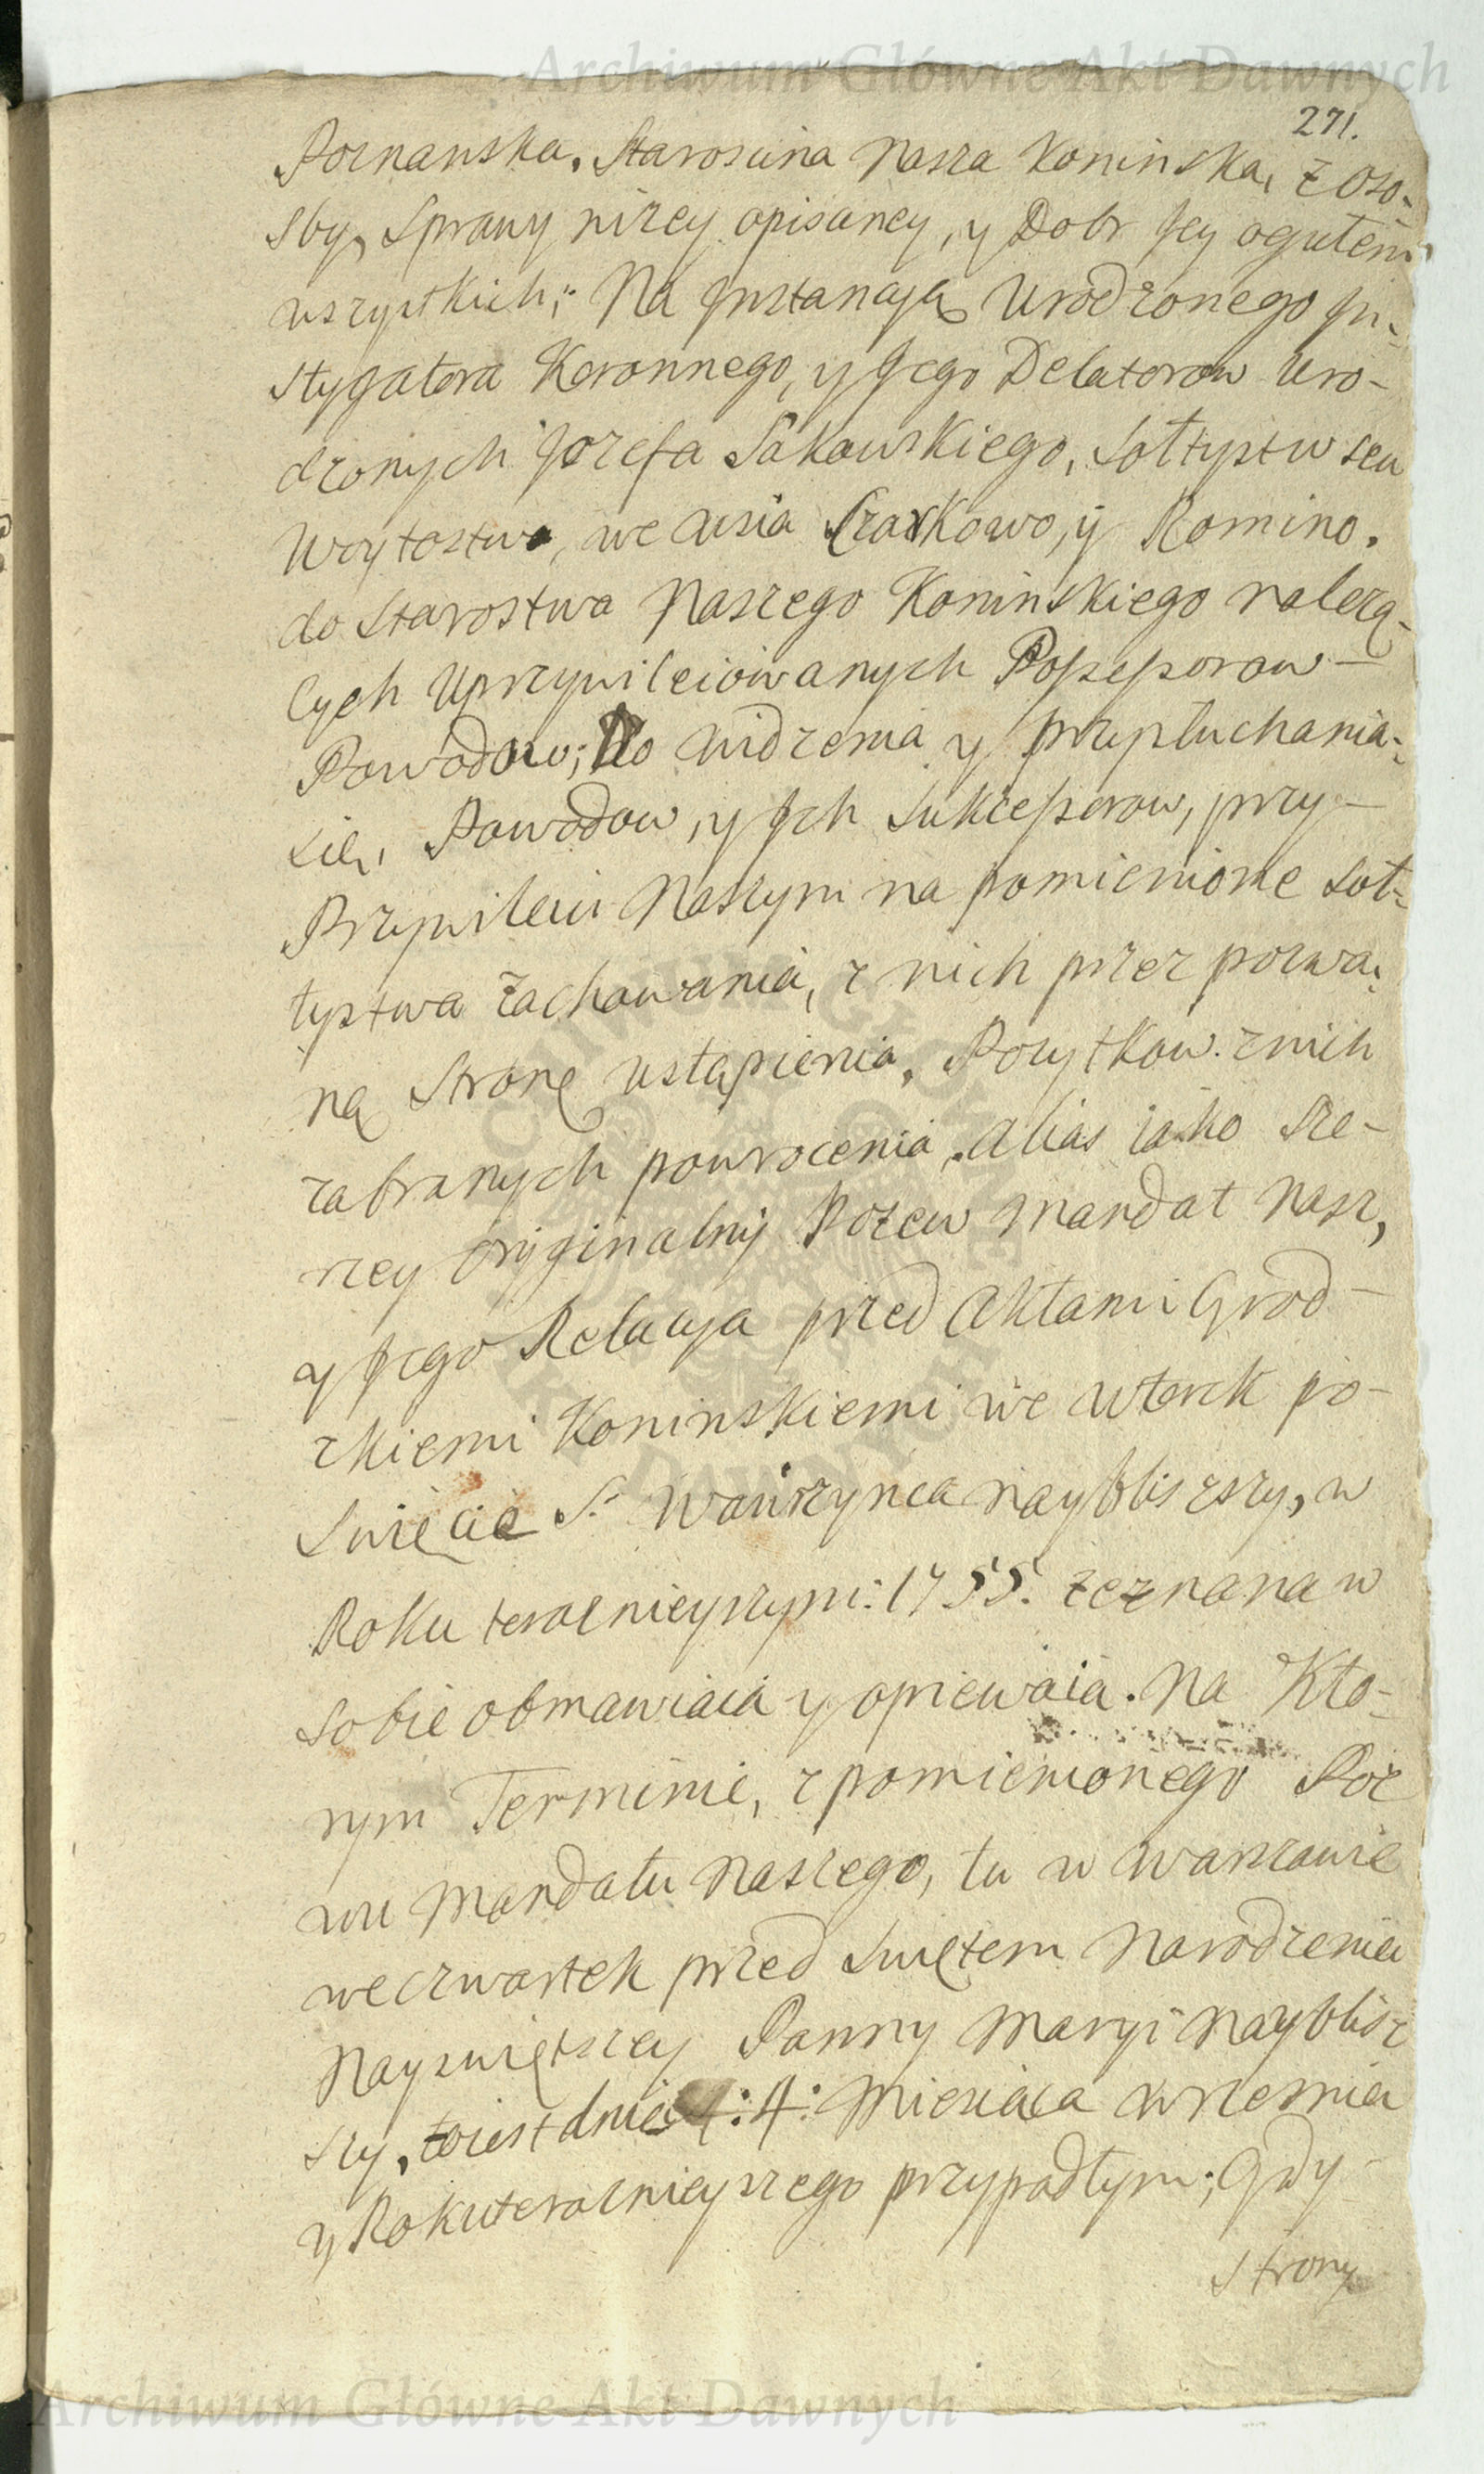 Archiwum Główne Akt Dawnych
271.
Poznanska, Staroscina Nasza Koninska, z oso-
sby, Sprawy niżey opisaney, y Dobr Jey ogułem
wszystkich; Na Jnstancyą Urodzonego Jn-
stygatora Koronnego, y Jego Delatorow Uro-
dzonych Jozefa Sakowskiego, Sołtystw seu
Woytostwa, we wsia Czarkowo, y Romino,
do Starostwa Naszego Koninskiego należą-
cych Uprzywileiowanych Possessorow
Powodow; Do widzenia y przysłuchania
się, Powodow, y Jch Sukcessorow, przy
Przywileiu Naszym na pomienione Soł-
tystwa zachowania, z nich przez pozwa-
ną Stronę ustąpienia, Pożytkow z nich
zabranych powrocenia, alias iako sze-
rzey oryginalny Pozew Mandat Nasz,
y Jego Relacya przed Aktami Grod-
zkiemi Koninskiemi we wtorek po
Swięcie S. Wawrzynca nayblis zszy, w
Roku teraznieyszym: 1755. zeznana w
sobie obmawiaią y opiewaią. Na Kto-
rym Terminie, z pomienionego Poz
wu Mandatu Naszego, tu w Warszawie
we czwartek przed Swiętem Narodzenia
Nayswiętszey Panny Maryi Nayblisz
szy, to iest dnia 4: Miesiąca Wrzesnia
y Roku teraznieyszego przypadłym; Gdy
Strony
Archiwum Główne Akt Dawnych